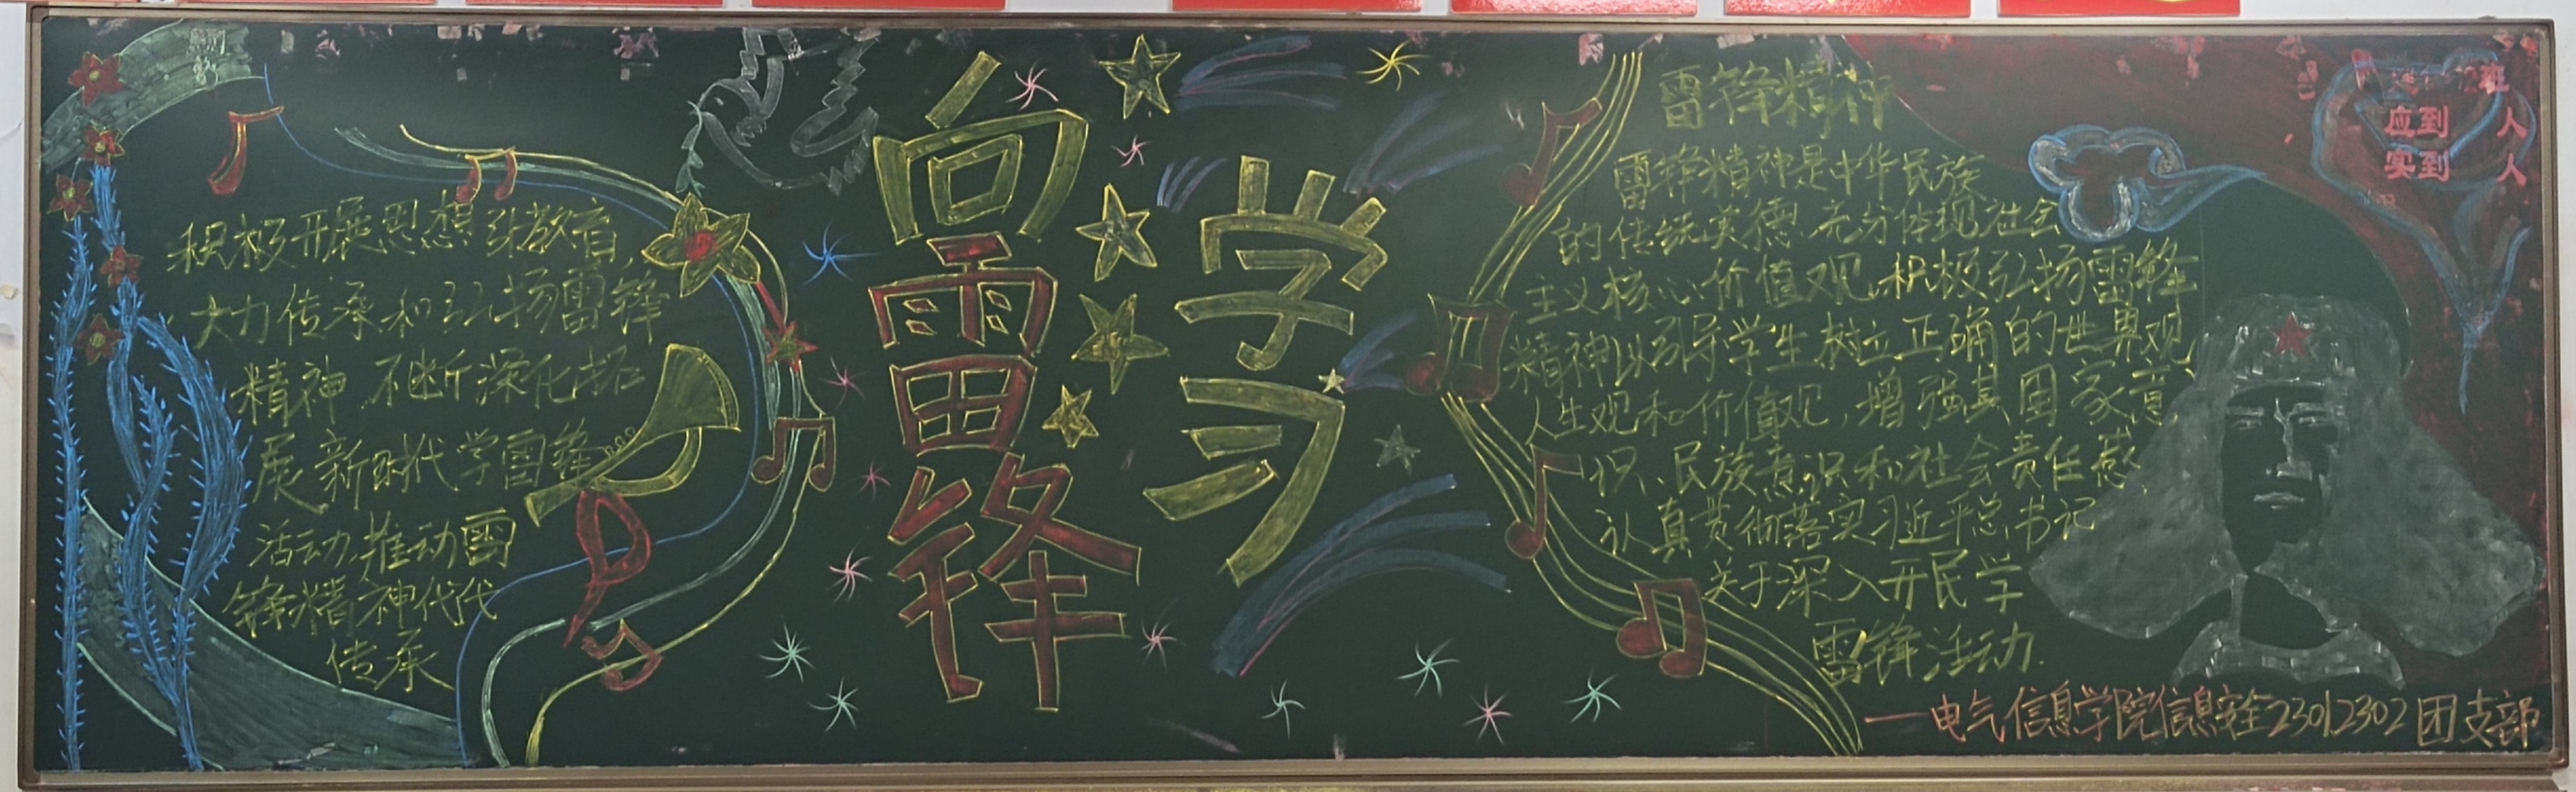 积极开展思想引教育,
大力传承和弘扬雷锋
精神,不断深化拓
展新时代学雷锋
活动,推动雷
锋精神代代
传承
向雷锋
学习
雷锋精神
雷锋精神是中华民族
的传统美德,充分体现社会
主义核心价值观,积极弘扬雷锋
精神以引导学生树立正确的世界观,
人生观和价值观,增强其国家意
识、民族意识和社会责任感,
认真贯彻落实习近平总书记
关于深入开民学
雷锋活动.
班
应到 人
实到 人
——电气信息学院信息安全2301 2302团支部